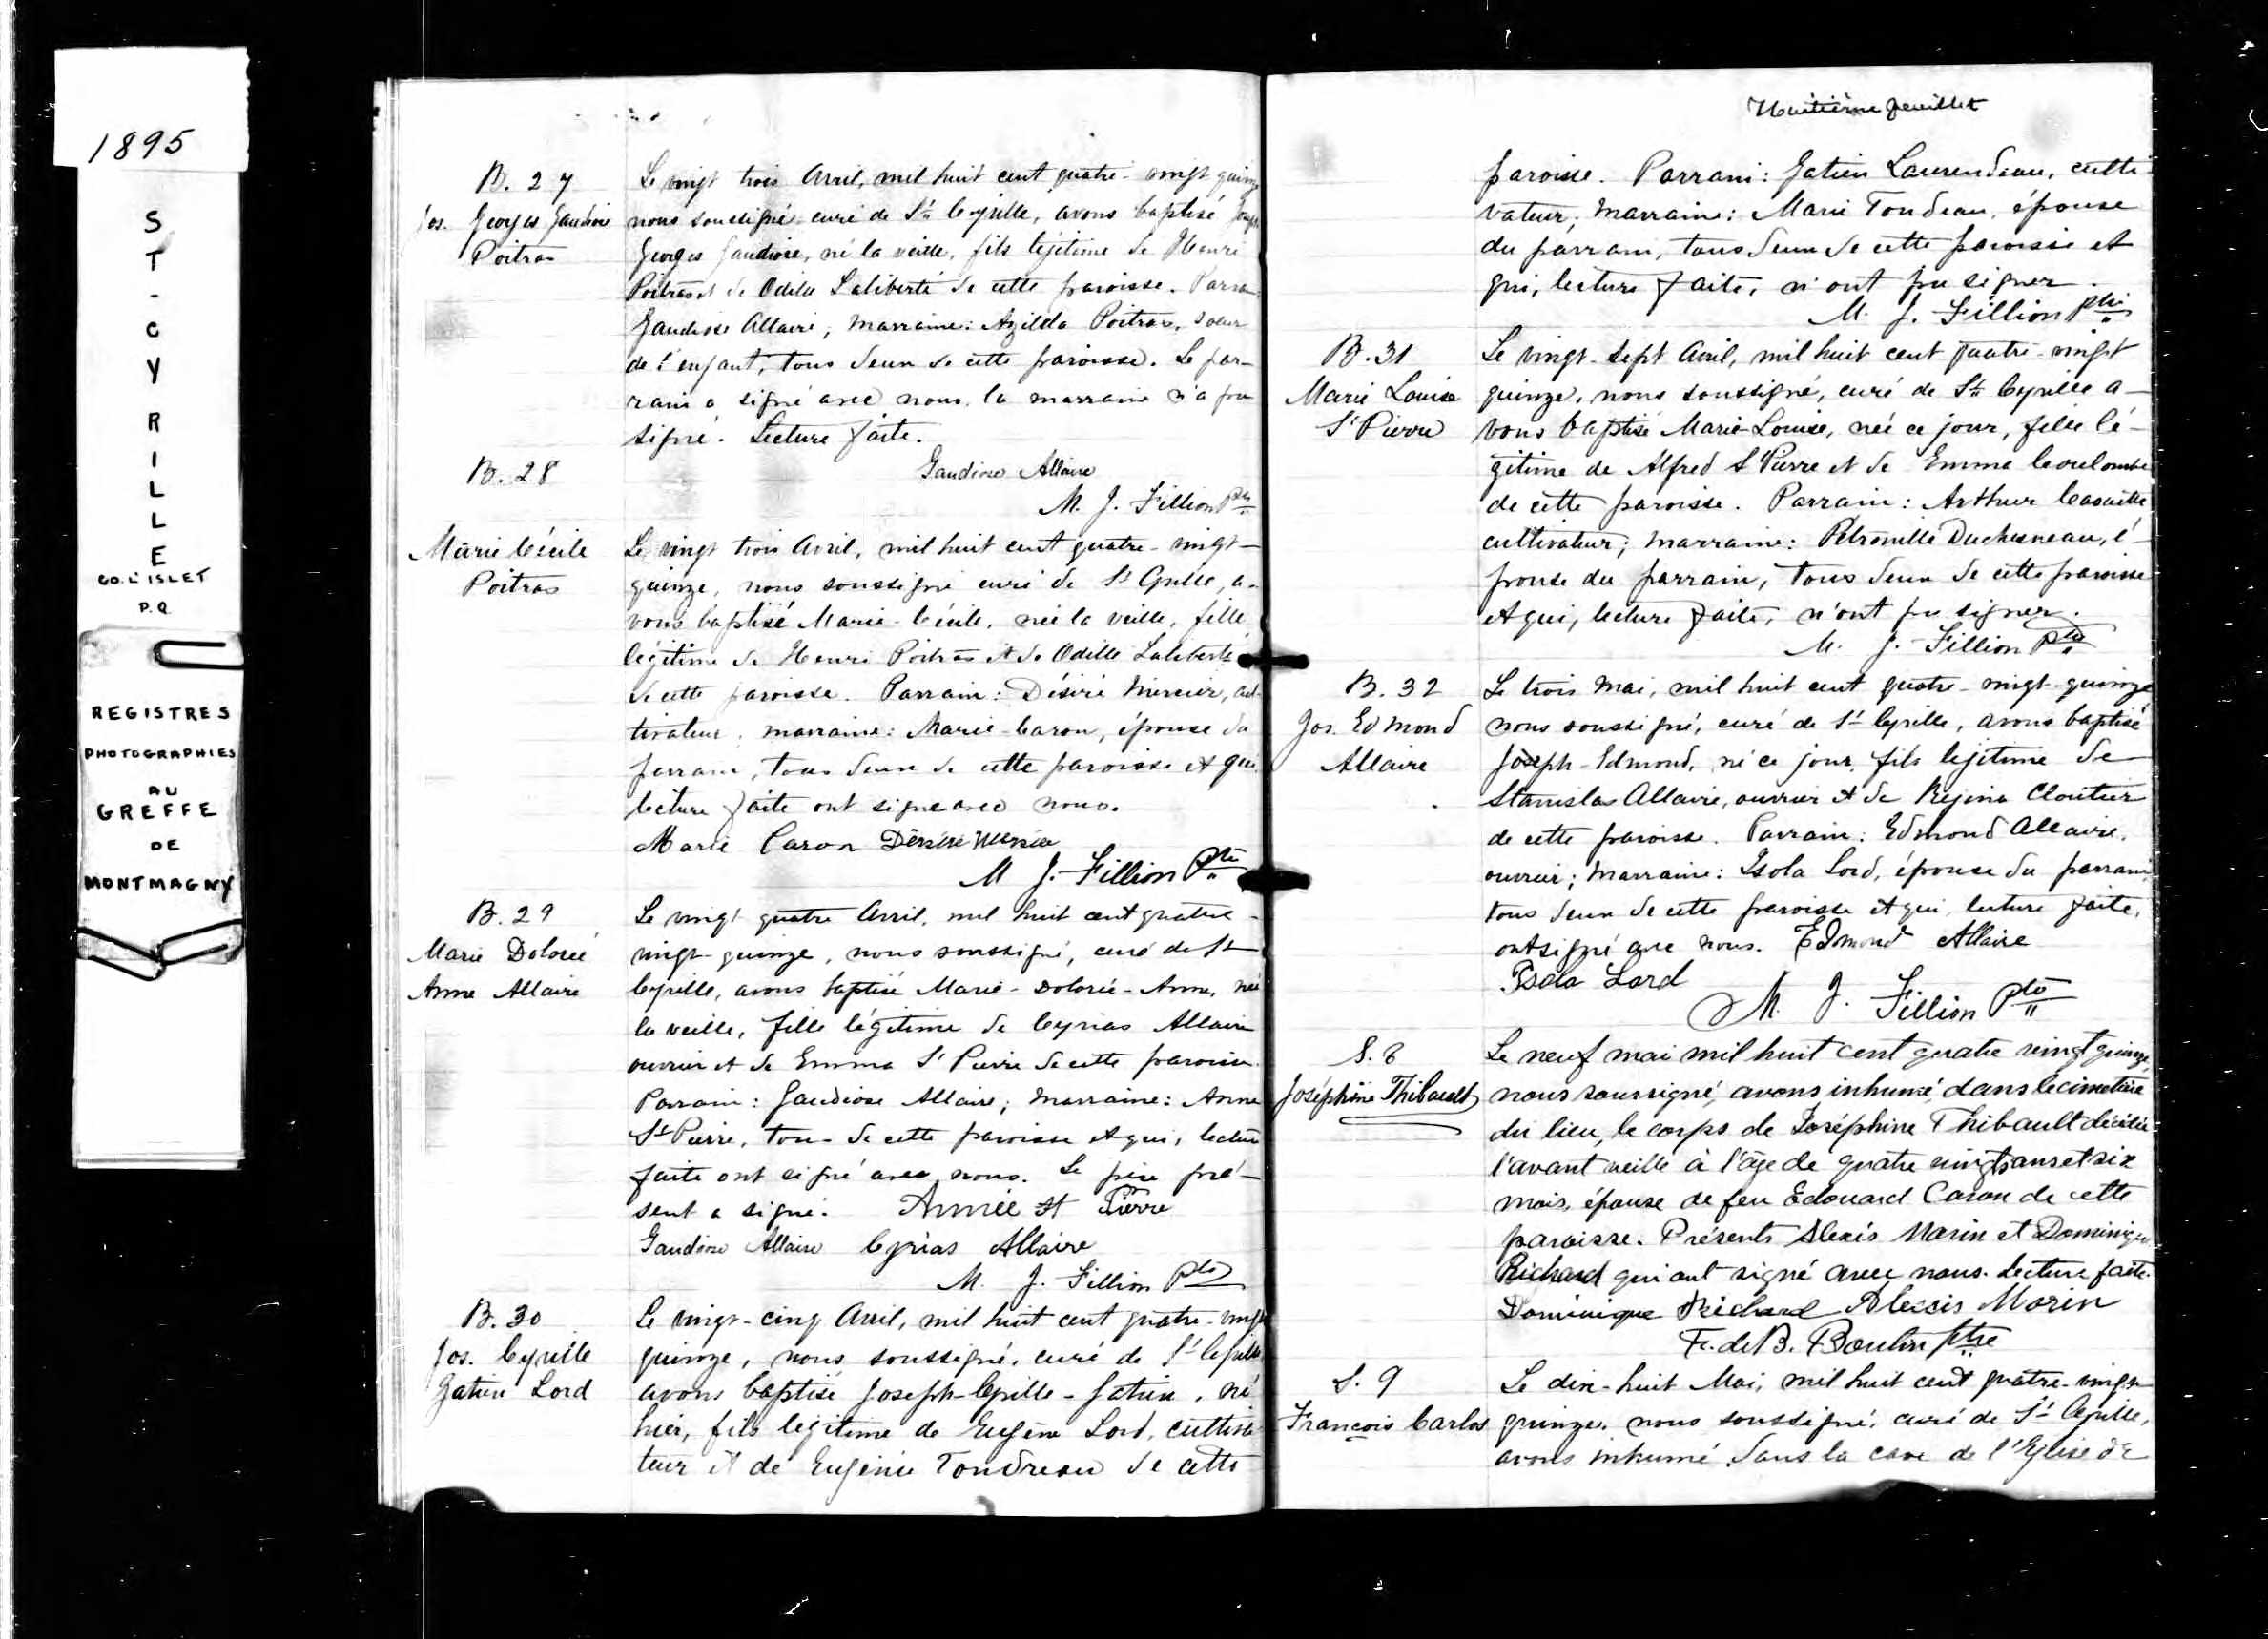 1895
ST-CYRILLE
CO. L'ISLET
P.Q.
REGISTRES
PHOTOGRAPHIES
AU
GREFFE
DE
MONTMAGNY
B. 27
Jos. Georges Gaudiose
Poitras
Le vingt trois Avril, mil huit cent quatre-vingt quinze
nous soussigné curé de St Cyrille, avons baptisé Joseph
Georges Gaudiose, né la veille, fils légitime de Henri
Poitras et de Odile Laliberté de cette paroisse. Parrain
Gaudiose Allaire, Marraine: Azilda Poitras, soeur
de l'enfant, tous deux de cette paroisse. Le par-
rain a signé avec nous, la marraine n'a pu
signé. Lecture faite.
Gaudiose Allaire
M. J. Fillion Ptre
B. 28
Marie Cécile
Poitras
Le vingt trois Avril, mil huit cent quatre-vingt-
quinze, nous soussigné curé de St Cyrille, a-
vons baptisé Marie-Cécile, née la veille, fille
légitime de Henri Poitras et de Odille Laliberté
de cette paroisse. Parrain: Désiré Mercier, cul-
tivateur, marraine: Marie-Caron, épouse du
parrain, tous deux de cette paroisse et qui
lecture faite ont signé avec nous.
Marie Caron Désiré Mercier
M J. Fillion Ptre
B. 29
Marie Dolorée
Anne Allaire
Le vingt quatre Avril, mil huit cent quatre-
vingt-quinze, nous soussigné, curé de St
Cyrille, avons baptisé Marie-Dolorée-Anne, née
la veille, fille légitime de Cyrias Allaire
ouvrier et de Emma St Pierre de cette paroisse.
Parrain: Gaudiose Allaire; Marraine: Anne
St Pierre, tous de cette paroisse et qui, lecture
faite ont signé avec nous. Le père pré-
sent a signé. Année St Pierre
Gaudiose Allaire Cyrias Allaire
M. J. Fillion Ptre
B. 30
Jos. Cyrille
Gatien Lord
Le vingt-cinq Avril, mil huit cent quatre-vingt
quinze, nous soussigné, curé de St Cyrille
avons baptisé Joseph-Cyrille-Gatien, né
hier, fils légitime de Eugène Lord, cultiva
teur et de Eugénie Tondreau de cette
Huitième feuillet
paroisse. Parrain: Gatien Laurendeau, culti-
vateur; Marraine: Marie Tondeau, épouse
du parrain, tous deux de cette paroisse et
qui, lecture faite, n'ont pu signer.
M. J. Fillion Ptre
B. 31
Marie Louise
St Pierre
Le vingt-sept Avril, mil huit cent quatre-vingt
quinze, nous soussigné, curé de St Cyrille a-
vons baptisé Marie-Louise, née ce jour, fille lé-
gitime de Alfred St Pierre et de Emma Coulombe
de cette paroisse. Parrain: Arthur Caouette
cultivateur; Marraine: Pétronille Duchesneau, é-
pouse du parrain, tous deux de cette paroisse
et qui, lecture faite, n'ont pu signer.
M. J. Fillion Ptre
B. 32
Jos. Edmond
Allaire
Le trois Mai, mil huit cent quatre-vingt-quinze
nous soussigné, curé de St Cyrille, avons baptisé
Joseph-Edmond, né ce jour, fils légitime de
Stanislas Allaire, ouvrier et de Régina Cloutier
de cette paroisse. Parrain: Edmond Allaire,
ouvrier; Marraine: Isola Lord, épouse du parrain
tous deux de cette paroisse et qui, lecture faite,
ont signé avec nous. Edmond Allaire
Isola Lord
M. J. Fillion Ptre
S. 8
Joséphine Thibault
Le neuf mai mil huit cent quatre vingt quinze,
nous soussigné, avons inhumé, dans le cimetière
du lieu, le corps de Joséphine Thibault décédée
l'avant veille à l'âge de quatre vingts ans et six
mois, épouse de feu Edouard Caron de cette
paroisse. Présents Alexis Morin et Dominique
Richard qui ont signé avec nous. Lecture faite.
Dominique Richard Alexis Morin
F. de B. Boulin ptre
S. 9
François Carlos
Le dix-huit Mai, mil huit cent quatre-vingt
quinze, nous soussigné, curé de St Cyrille,
avons inhumé dans la cave de l'Eglise de